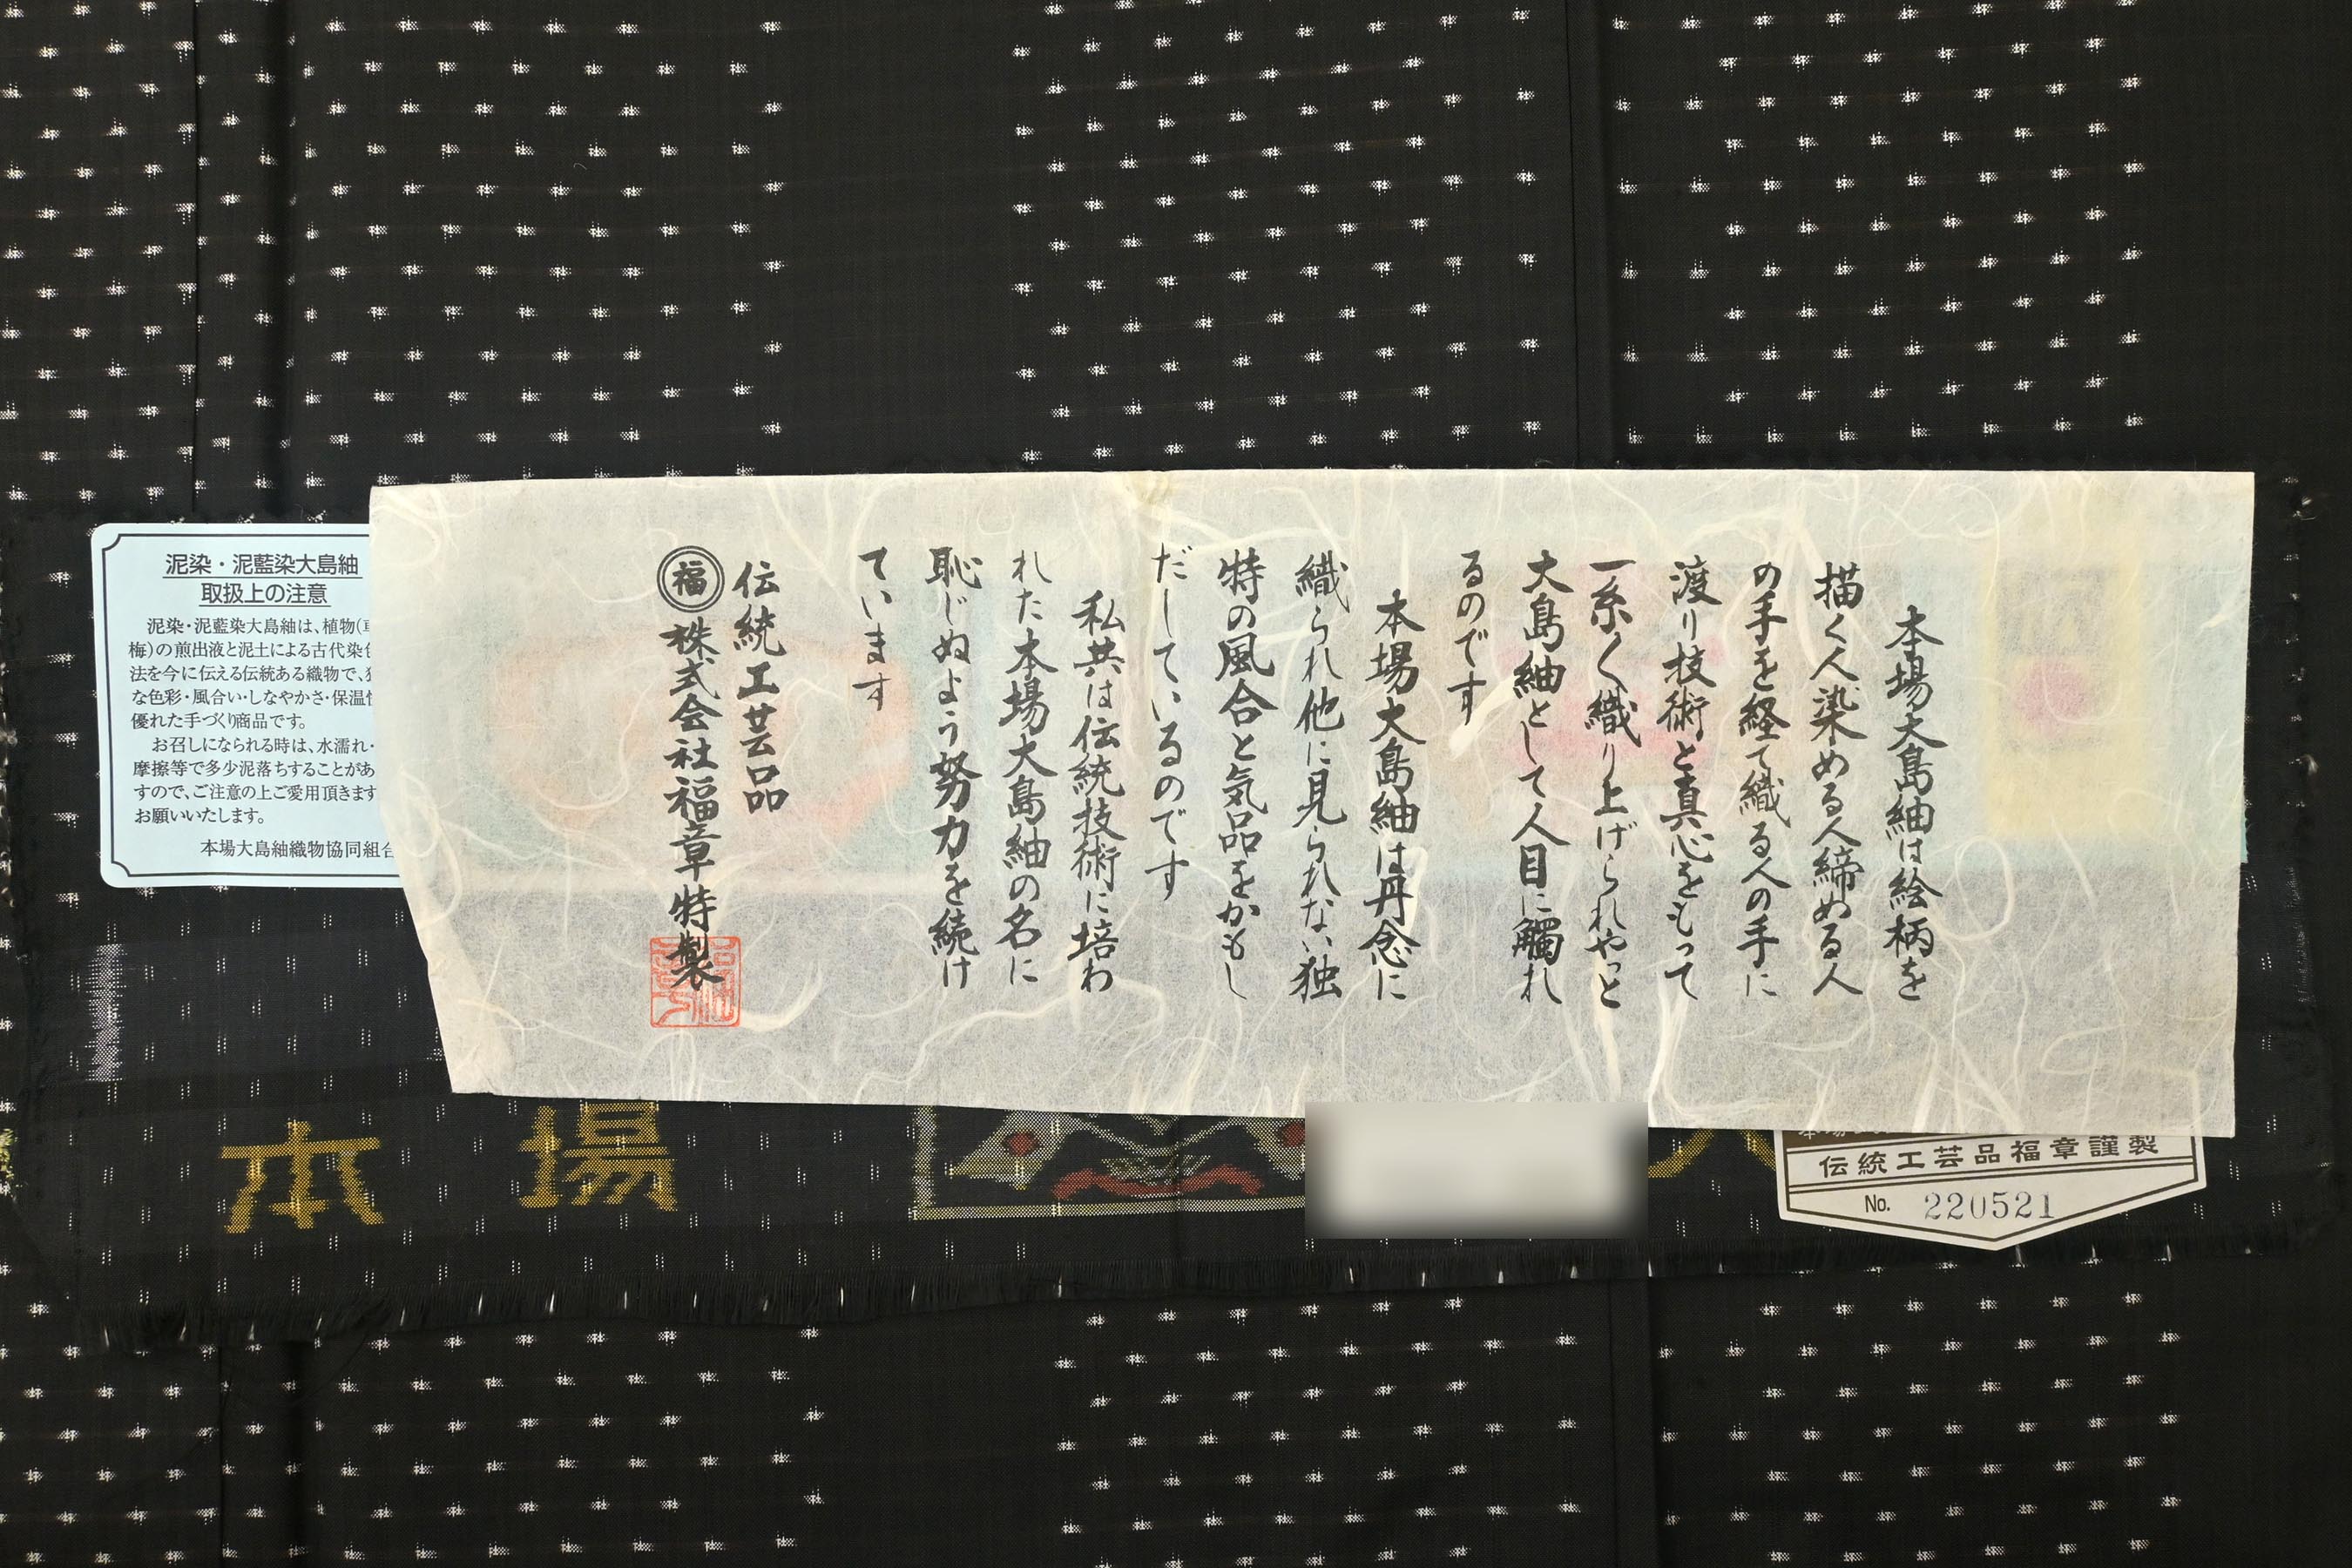 本場大島紬は絵柄を
描く人染める人締める人
の手を経て織る人の手に
渡り技術と真心をもって
一糸く織り上げられやっと
大島紬として人目に觸れ
るのです
本場大島紬は丹念に
織られ他に見られない独
特の風合と気品をかもし
だしているのです
私共は伝統技術に培わ
れた本場大島紬の名に
恥じぬよう努力を続け
ています
伝統工芸品
福 株式会社福章特製
泥染・泥藍染大島紬
取扱上の注意
泥染・泥藍染大島紬は、植物(車
梅)の煎出液と泥土による古代染色
法を今に伝える伝統ある織物で、独
な色彩・風合い・しなやかさ・保温性
優れた手づくり商品です。
お召しになられる時は、水濡れ・
摩擦等で多少泥落ちすることがあ
すので、ご注意の上ご愛用頂きます
お願いいたします。
本場大島紬織物協同組合
本場
伝統工芸品福章謹製
No. 220521